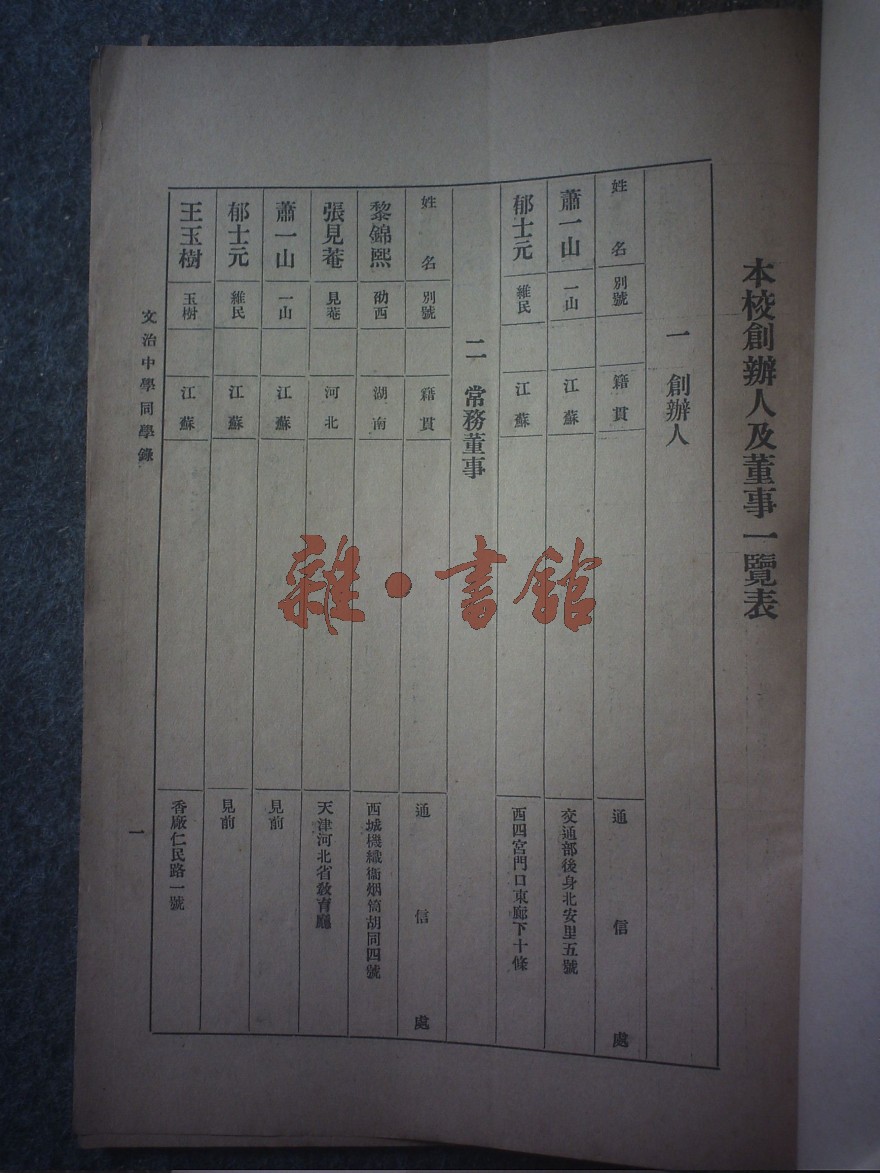 本校創辦人及董事一覽表
一 創辦人
姓名 別號 籍貫 通信處
蕭一山 一山 江蘇 交通部後身北安里五號
郁士元 維民 江蘇 西四宮門口東廊下十條
二 常務董事
姓名 別號 籍貫 通信處
黎錦熙 劭西 湖南 西城機織衞烟筒胡同四號
張見菴 見菴 河北 天津河北省敎育廳
蕭一山 一山 江蘇 見前
郁士元 維民 江蘇 見前
王玉樹 玉樹 江蘇 香廠仁民路一號
文治中學同學錄
一
雜·書館